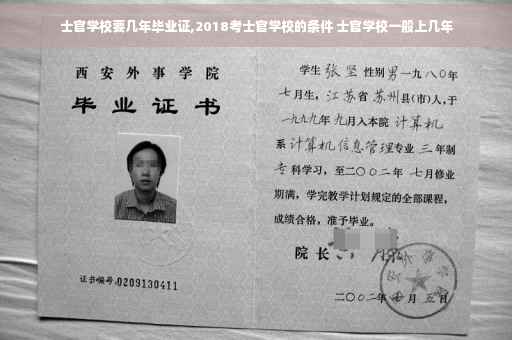 士官学校要几年毕业证,2018考士官学校的条件 士官学校一般上几年
西安外事学院
毕业证书
证书编号:0209130411
学生 张坚 性别 男 一九八〇年
七月生，江苏省 苏州县(市)人，于
一九九九年 九月入本院 计算机
系 计算机信息管理专业 三 年制
专科学习，至二〇〇二年 七月修业
期满，学完教学计划规定的全部课程，
成绩合格，准予毕业。
院长
二〇〇二年 月 五日